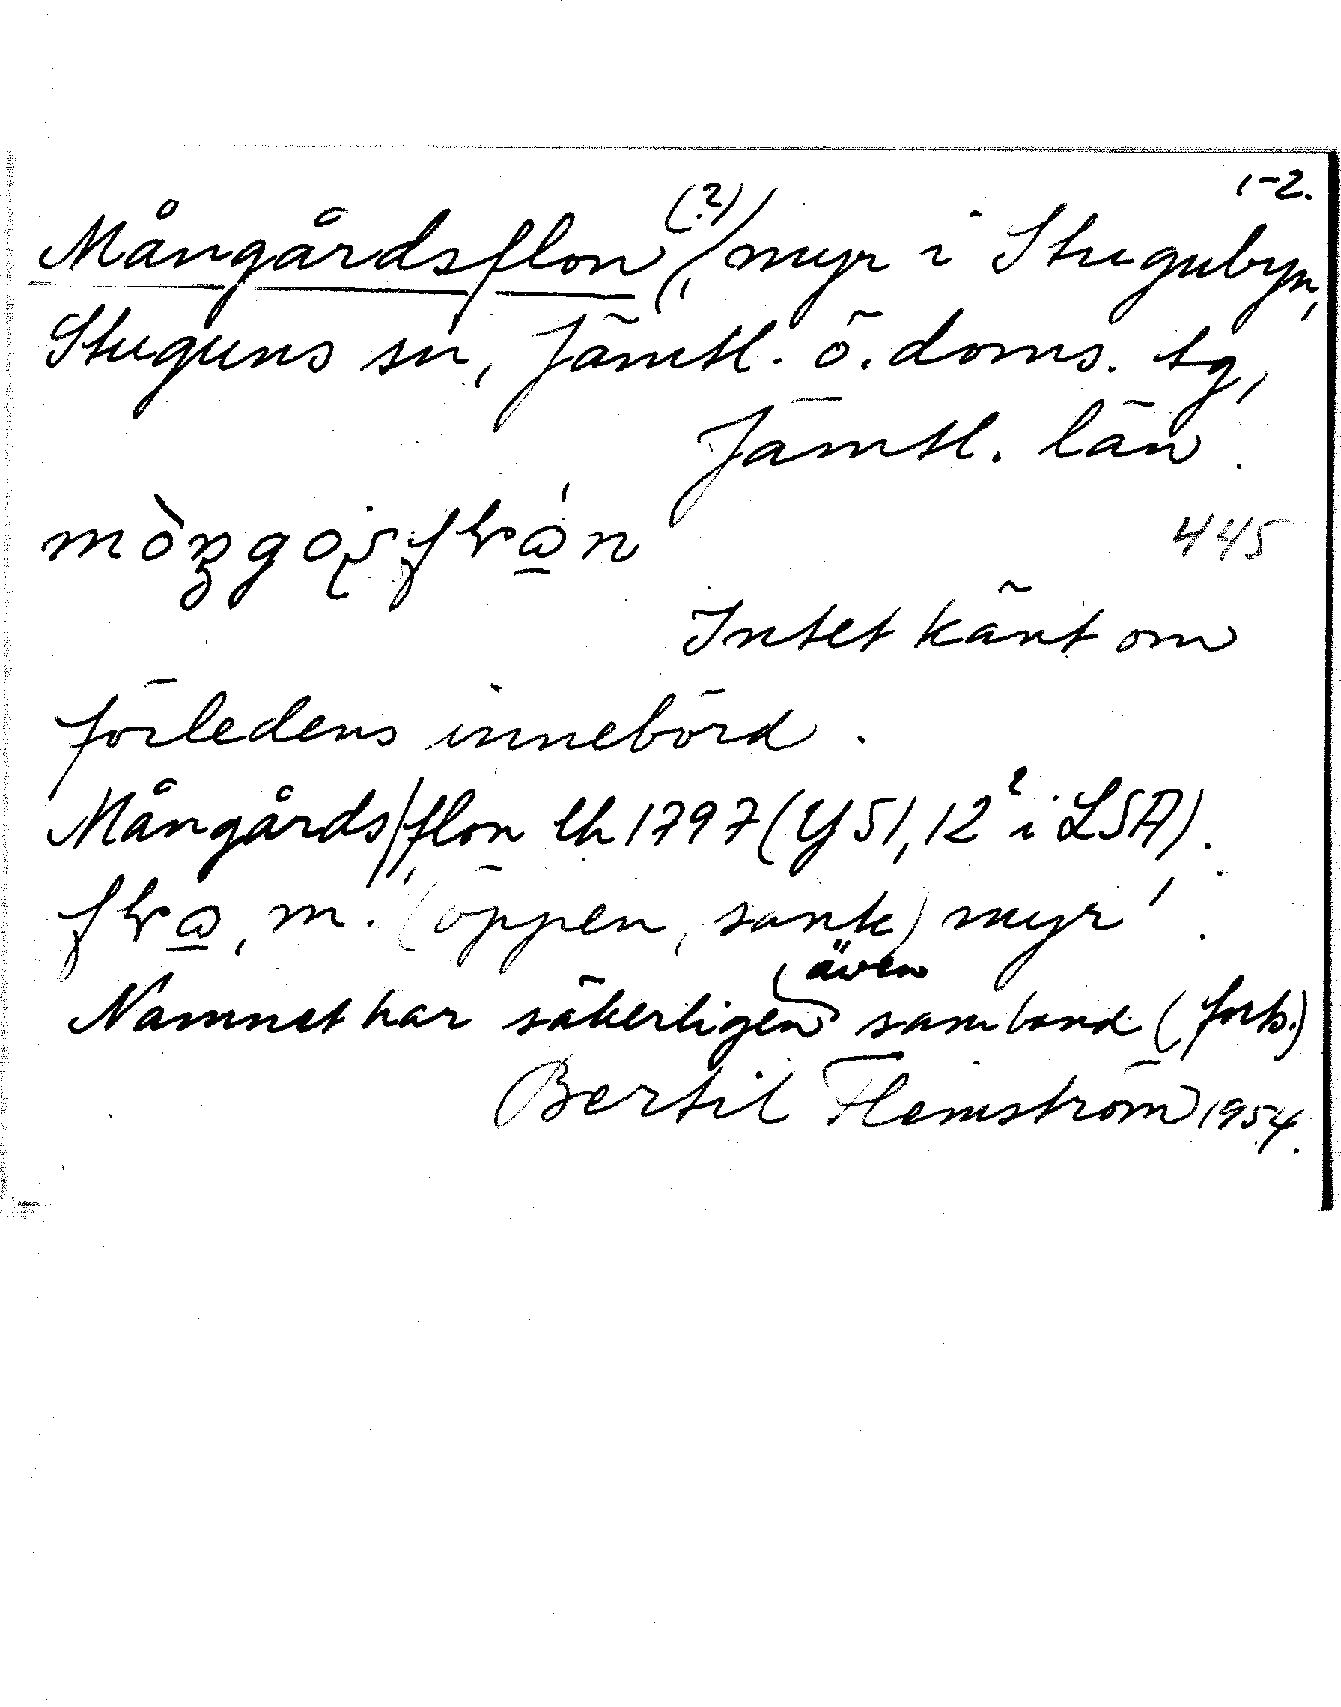 1-2.
Mångårdsflon (?), myr i Stugubyn,
Stuguns sn, Jämtl. ö. doms. tg,
Jämtl. län.
445
Intet känt om
förledens innebörd.
Mångårds/flon lh 1797 (Y 51, 12² i LSA).
m. '(öppen, sank) myr'.
Namnet har säkerligen även samband (forts.)
Bertil Flemström 1954.